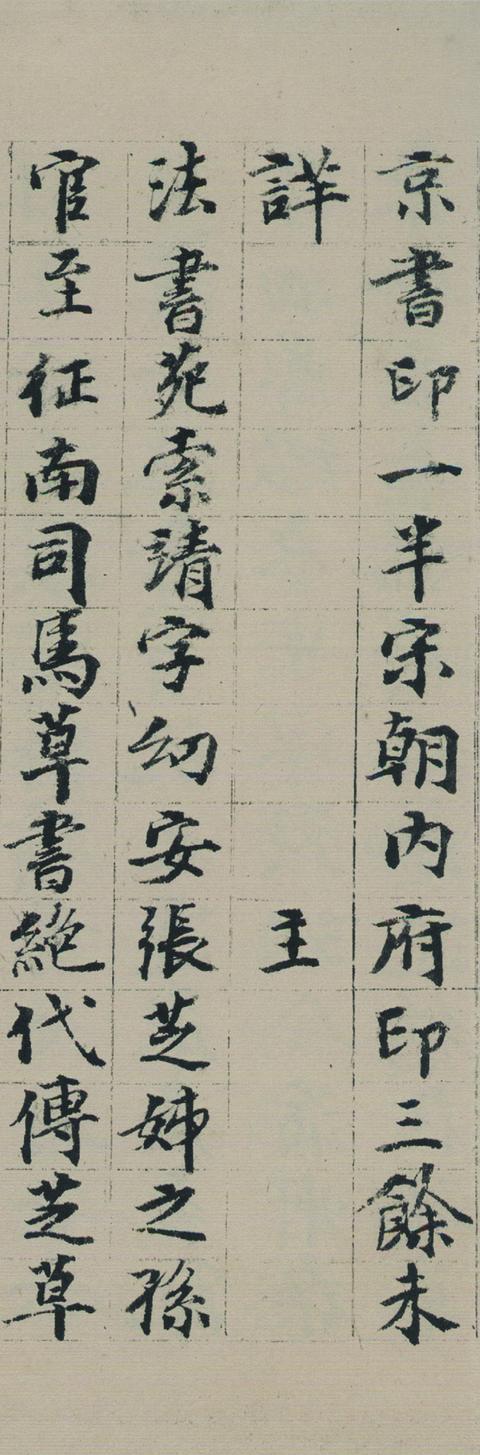 京書印一半宋朝内府印三餘未
詳 主
法書苑索靖字幼安張芝姊之孫
官至征南司馬草書絶代傳芝草